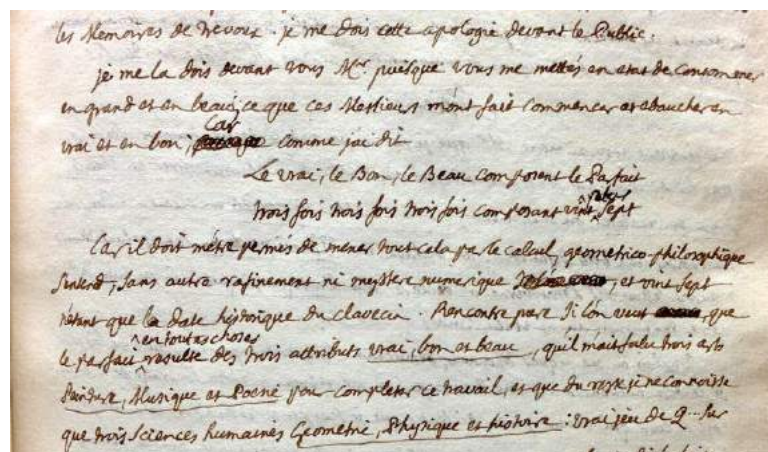 les Memoires de Trevoux. je me dois cette apologie devant le Public.
je me la dois devant vous Mr puisque vous me mettés en etat de consommer
en grand et en beau, ce que ces Messieurs m'ont fait commencer et ebaucher en
car
vrai et en bon; comme jai dit
Le vrai, le Bon, le Beau composent le Parfait
trois fois trois fois trois fois composant vint sept
Car il doit m'étre permis de mener tout cela par le calcul, geometrico-philosophique
s'entend, sans autre rafinement ni mystere numerique, et vint sept
n'étant que la date historique du clavecin. Rencontre pure si l'on veut que
en toutes choses
le parfait resulte des trois attributs vrai, bon et beau, qu'il m'ait falu trois arts
Peinture, Musique et Poesie pour completer ce travail, et que du reste je ne connoisse
que trois Sciences humaines Geometrie, Physique et histoire: vrai jeu de